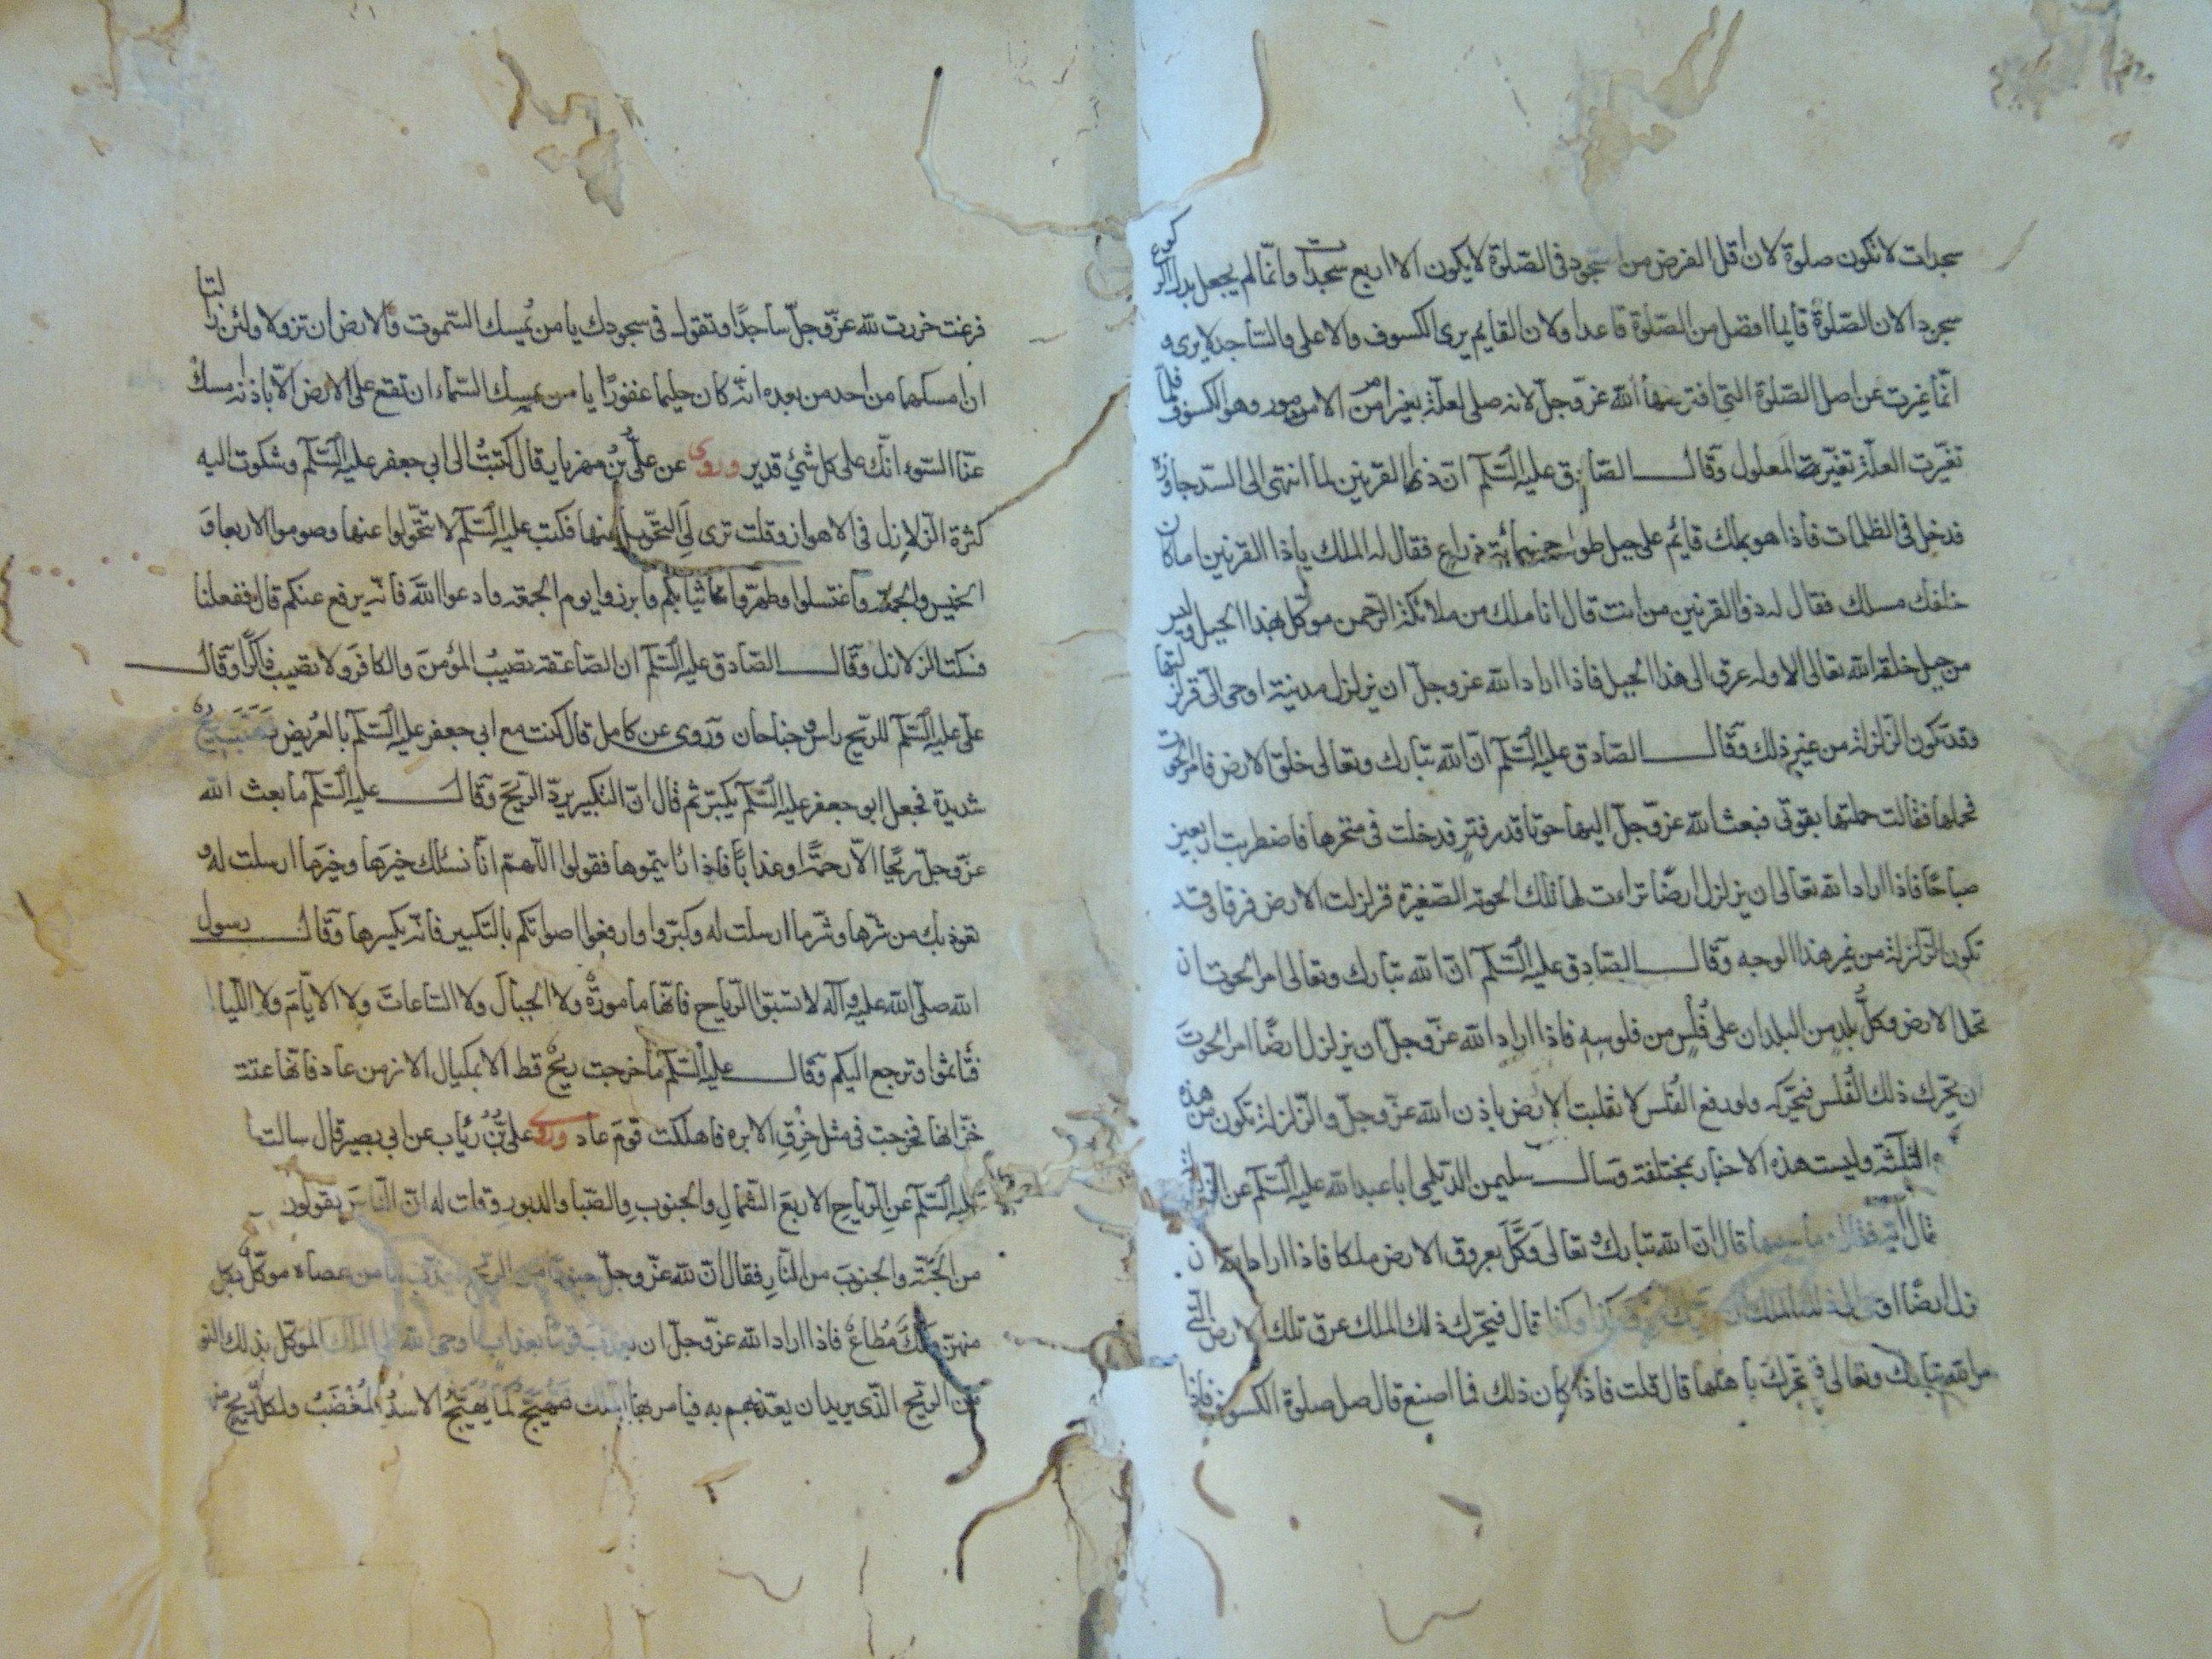 سجدات لا تكون صلوة لان اقل الفرض من السجود فى الصّلوة لا يكون الا اربع سجدات وانّما لم يجعل بدل الركوع
سجودا لان الصّلوة قايما افضل من الصّلوة قاعدا ولان القايم يرى الكسوف والاعلى والسّاجد لا يرى و
انّما غيرت عن اصل الصّلوة التى افترضها الله عزّ وجلّ لانه صلى لعلّة بغير امر من الامور وهو الكسوف فلمّا
تغيّرت العلّة تغيّر المعلول وقال الصّادق عليه السّلم انّ ذا القرنين لما انتهى الى السّد جاوزه
فدخل فى الظلمات فاذا هو بملك قايم على جبل طوله خمسمائة ذراع فقال له الملك ياذا القرنين اما كان
خلفك مسلك فقال له ذو القرنين من انت قال انا ملك من ملائكة الرّحمن موكّل بهذا الجبل وليس
من جبل خلقه الله تعالى الا وله عرق الى هذا الجبل فاذا اراد الله عز وجلّ ان يزلزل مدينة اوحى الىّ فزلزلتها
وقد تكون الزّلزلة من غير ذلك وقال الصّادق عليه السّلم انّ الله تبارك وتعالى خلق الارض فامر الحوت
فحملها فقالت حملتها بقوتى فبعث الله عزّ وجلّ اليها حوتا قدر فتر فدخلت فى منخرها فاضطربت اربعين
صباحًا فاذا اراد الله تعالى ان يزلزل ارضًا تراءت لها تلك الحوتة الصّغيرة فزلزلت الارض فرقا وقد
تكون الزّلزلة من غير هذا الوجه وقال الصّادق عليه السّلم انّ الله تبارك وتعالى امر الحوت ان
تحمل الارض وكلُّ بلدٍ من البلدان على فُلْسٍ من فلوسِه فاذا اراد الله عزّ وجلّ ان يزلزل ارضًا امر الحوتَ
ان تحّرك ذلك الفُلسَ فتحرّكه ولو رفع الفُلس لانقلبت الارض باذن الله عزّ وجلّ والزّلزلة تكون من هذه
الثلثة وليست هذه الاخبار بمختلفة وسال سليمن الدّيلمى ابا عبدالله عليه السّلم عن الزّلزلة
فقال وما سببها قال انّ الله تبارك وتعالى وكَّلَ بعروق الارض ملكا فاذا اراد الله ان
يزلزل ارضًا الى ذلك الملك ان كذا وكذا قال فيحّرك ذلك الملك عرق تلك الارض الّتى
امر الله تبارك وتعالى فتحرّك باهلها قال قلت فاذا كان ذلك فما اصنع قال صل صلوة الكسوف فاذا
فرغت خررت لله عزّ وجلّ ساجدًا وتقول فى سجودك يا من يُمسك السّموت والارض ان تزولا ولئن زالتا
ان امسكهما من احد من بعده انّه كان حليما غفورًا يا من يمسك السّماء ان تقع على الارض الّا باذنه امسك
عنّا السّوء انّك على كل شىء قدير وروى عن علىُّ بنُ مهزيار قال كتبتُ الى ابى جعفر عليه السّلم وشكوت اليه
كثرة الزّلازل فى الاهواز وقلت ترى لى التحّويل عنها فكتب عليه السّلم لا تتحّولوا عنها وصوموا الاربعا و
الخميس والجمعة واغتسلوا وطهّروا ثيابكم وابرزوا يوم الجمعه وادعوا اللهَ فانّه يرفع عنكم قال ففعلنا
فسكنت الزلازل وقال الصّادق عليه السّلم ان الصّاعقة تصيبُ المؤمنَ والكافرَ ولا تصيب ذاكرًا وقال
علىّ عليه السّلم للرّيح راس وجناحان وروى عن كامل قال كنت مع ابى جعفر عليه السّلم بالعُريض فهبّت ريحٌ
شديدة فجعل ابو جعفر عليه السّلم يكبّر ثم قال انّ التكبير يردّ الرّيحَ وقال عليه السّلم ما بعث الله
عزّ وجلّ ريحًا الّا رحمةً او عذابًا فاذا رايتموها فقولوا اللّهمّ انّا نسئلك خيرَها وخيرَ ما ارسلت له و
نعوذ بك من شرّها وشرّ ما ارسلت له وكبّروا وارفعوا اصواتكم بالتكبير فانّه يكسرها وقال رسول
الله صلّى الله عليه وآله لا تسبّوا الرّياح فانّها مامورةٌ ولا الجبالَ ولا السّاعاتَ ولا الايّامَ ولا اللّيالى
فتأثموا وترجع اليكم وقال عليه السّلم ما خرجت ريحٌ قط الا بمكيال الا زمن عاد فانّها عتت
خزّانها فخرجت فى مثل خرق الابره فاهلكت قومَ عاد وروى علىُّ بْنُ رئاب عن ابى بصير قال سالت ابا
عليه السّلم عن الرّياحِ الاربعَ الشّمالِ والجنوبِ والصّبا والدبورِ وقلت له انّ النّاسَ يقولون
من الجنّة والجنوبَ من النّارِ فقال انّ لله عزّ وجلّ جنودًا من الرّيح يعذّب بها من عصاه موكّل بكل
منهنّ ملَكٌ مُطاعٌ فاذا اراد الله عزّ وجلّ ان يعذّب قومًا بعذاب اوحى الله الى الملك الموكّل بذلك النوع
من الرّيح الّذى يريد ان يعذّبهم به فيامر بها الملك فتهيجُ كما يَهيجُ الاسدُ المُغْضَبُ ولكلّ ريح منهن